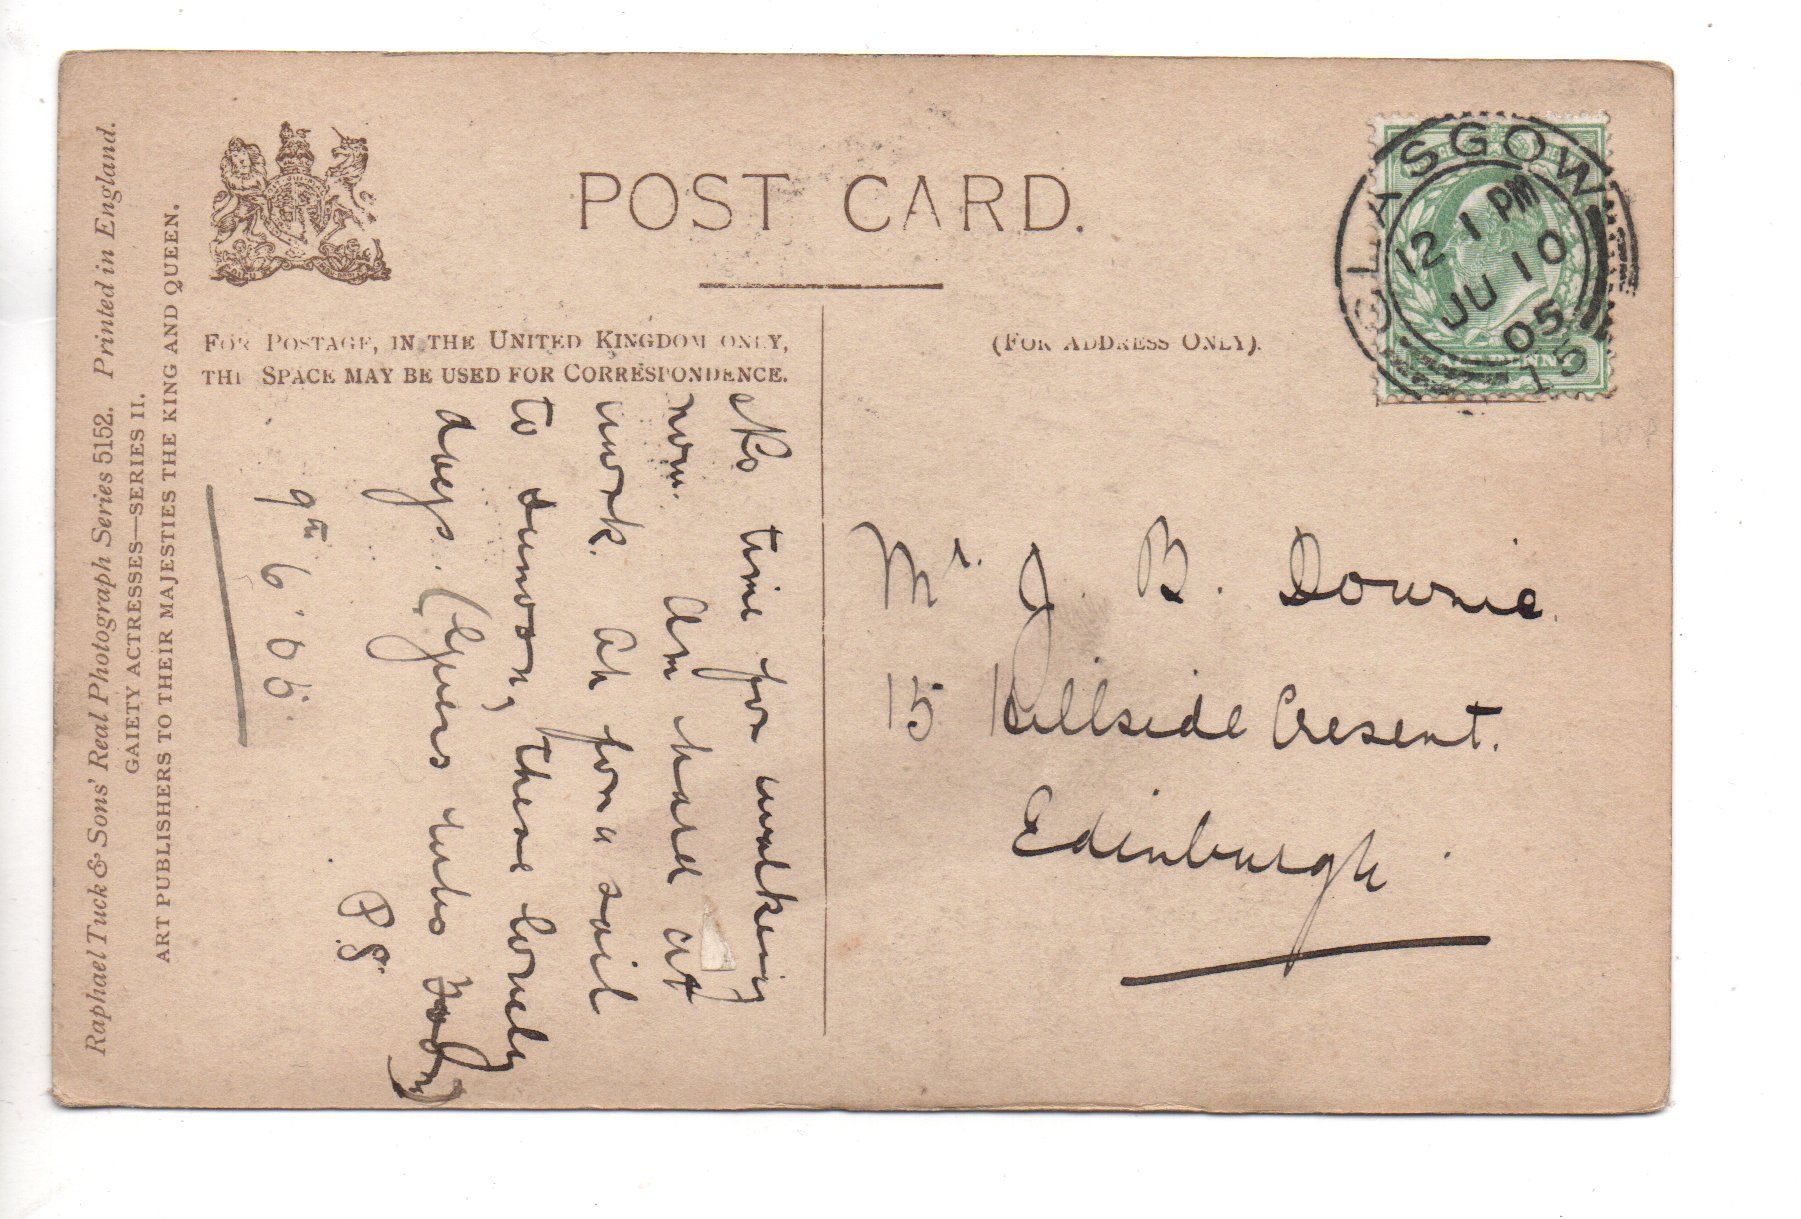 Raphael Tuck & Sons' Real Photograph Series 5152. Printed in England.
GAIETY ACTRESSES—SERIES II.
ART PUBLISHERS TO THEIR MAJESTIES THE KING AND QUEEN.
POST CARD.
FOR POSTAGE, IN THE UNITED KINGDOM ONLY,
THE SPACE MAY BE USED FOR CORRESPONDENCE.
(FOR ADDRESS ONLY).
GLASGOW
12 1 PM
JU 10
05
15
No time for walking
now. Am hard at
work. Ah for a sail
to Dunoon, these lonely
days.
P.S.
9th 6 '05
Mr. J. B. Downie.
15 Hillside Cresent.
Edinburgh